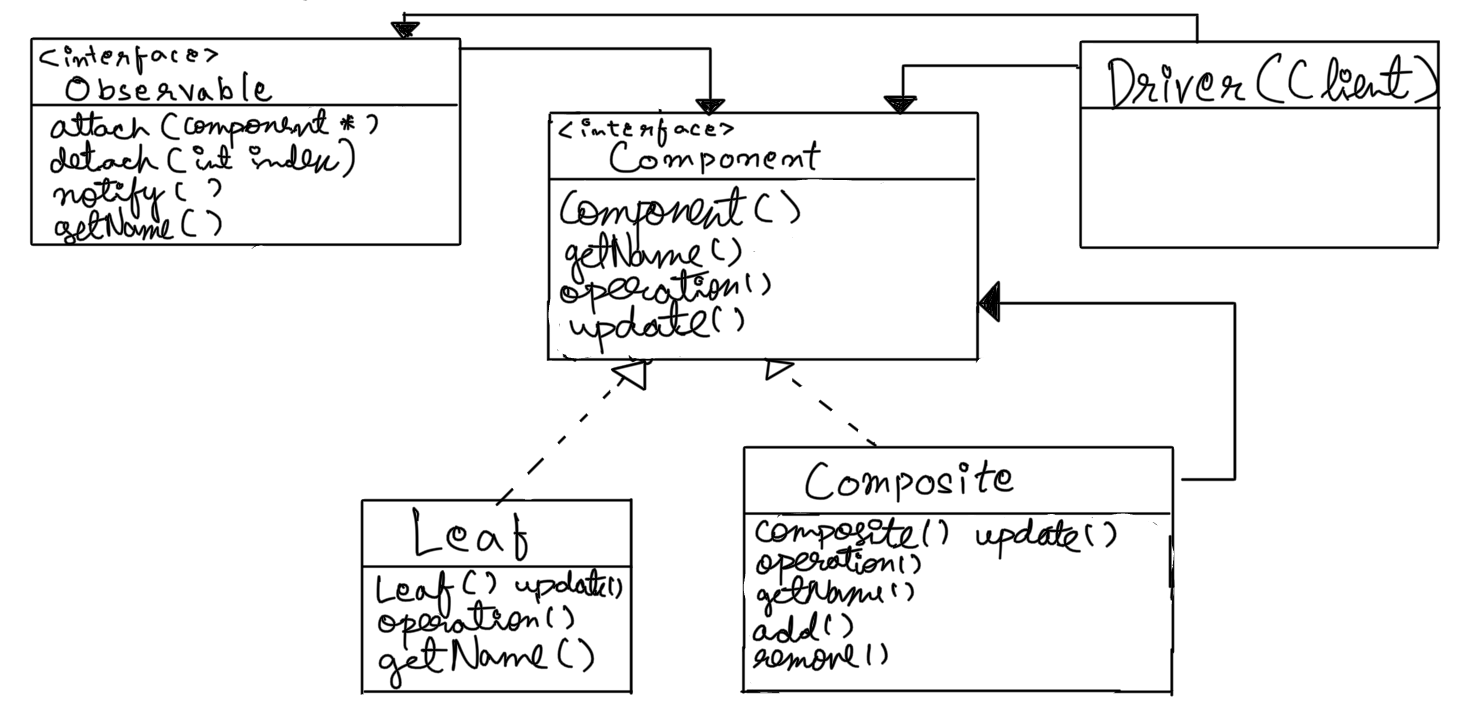 <interface>
Observable
attach (component *)
detach (int index)
notify ( )
getName ( )
<interface>
Component
Component ( )
getName ( )
operation ( )
update ( )
Driver (Client)
Leaf
Leaf ( ) update ( )
operation ( )
getName ( )
Composite
composite ( ) update ( )
operation ( )
getName ( )
add ( )
remove ( )